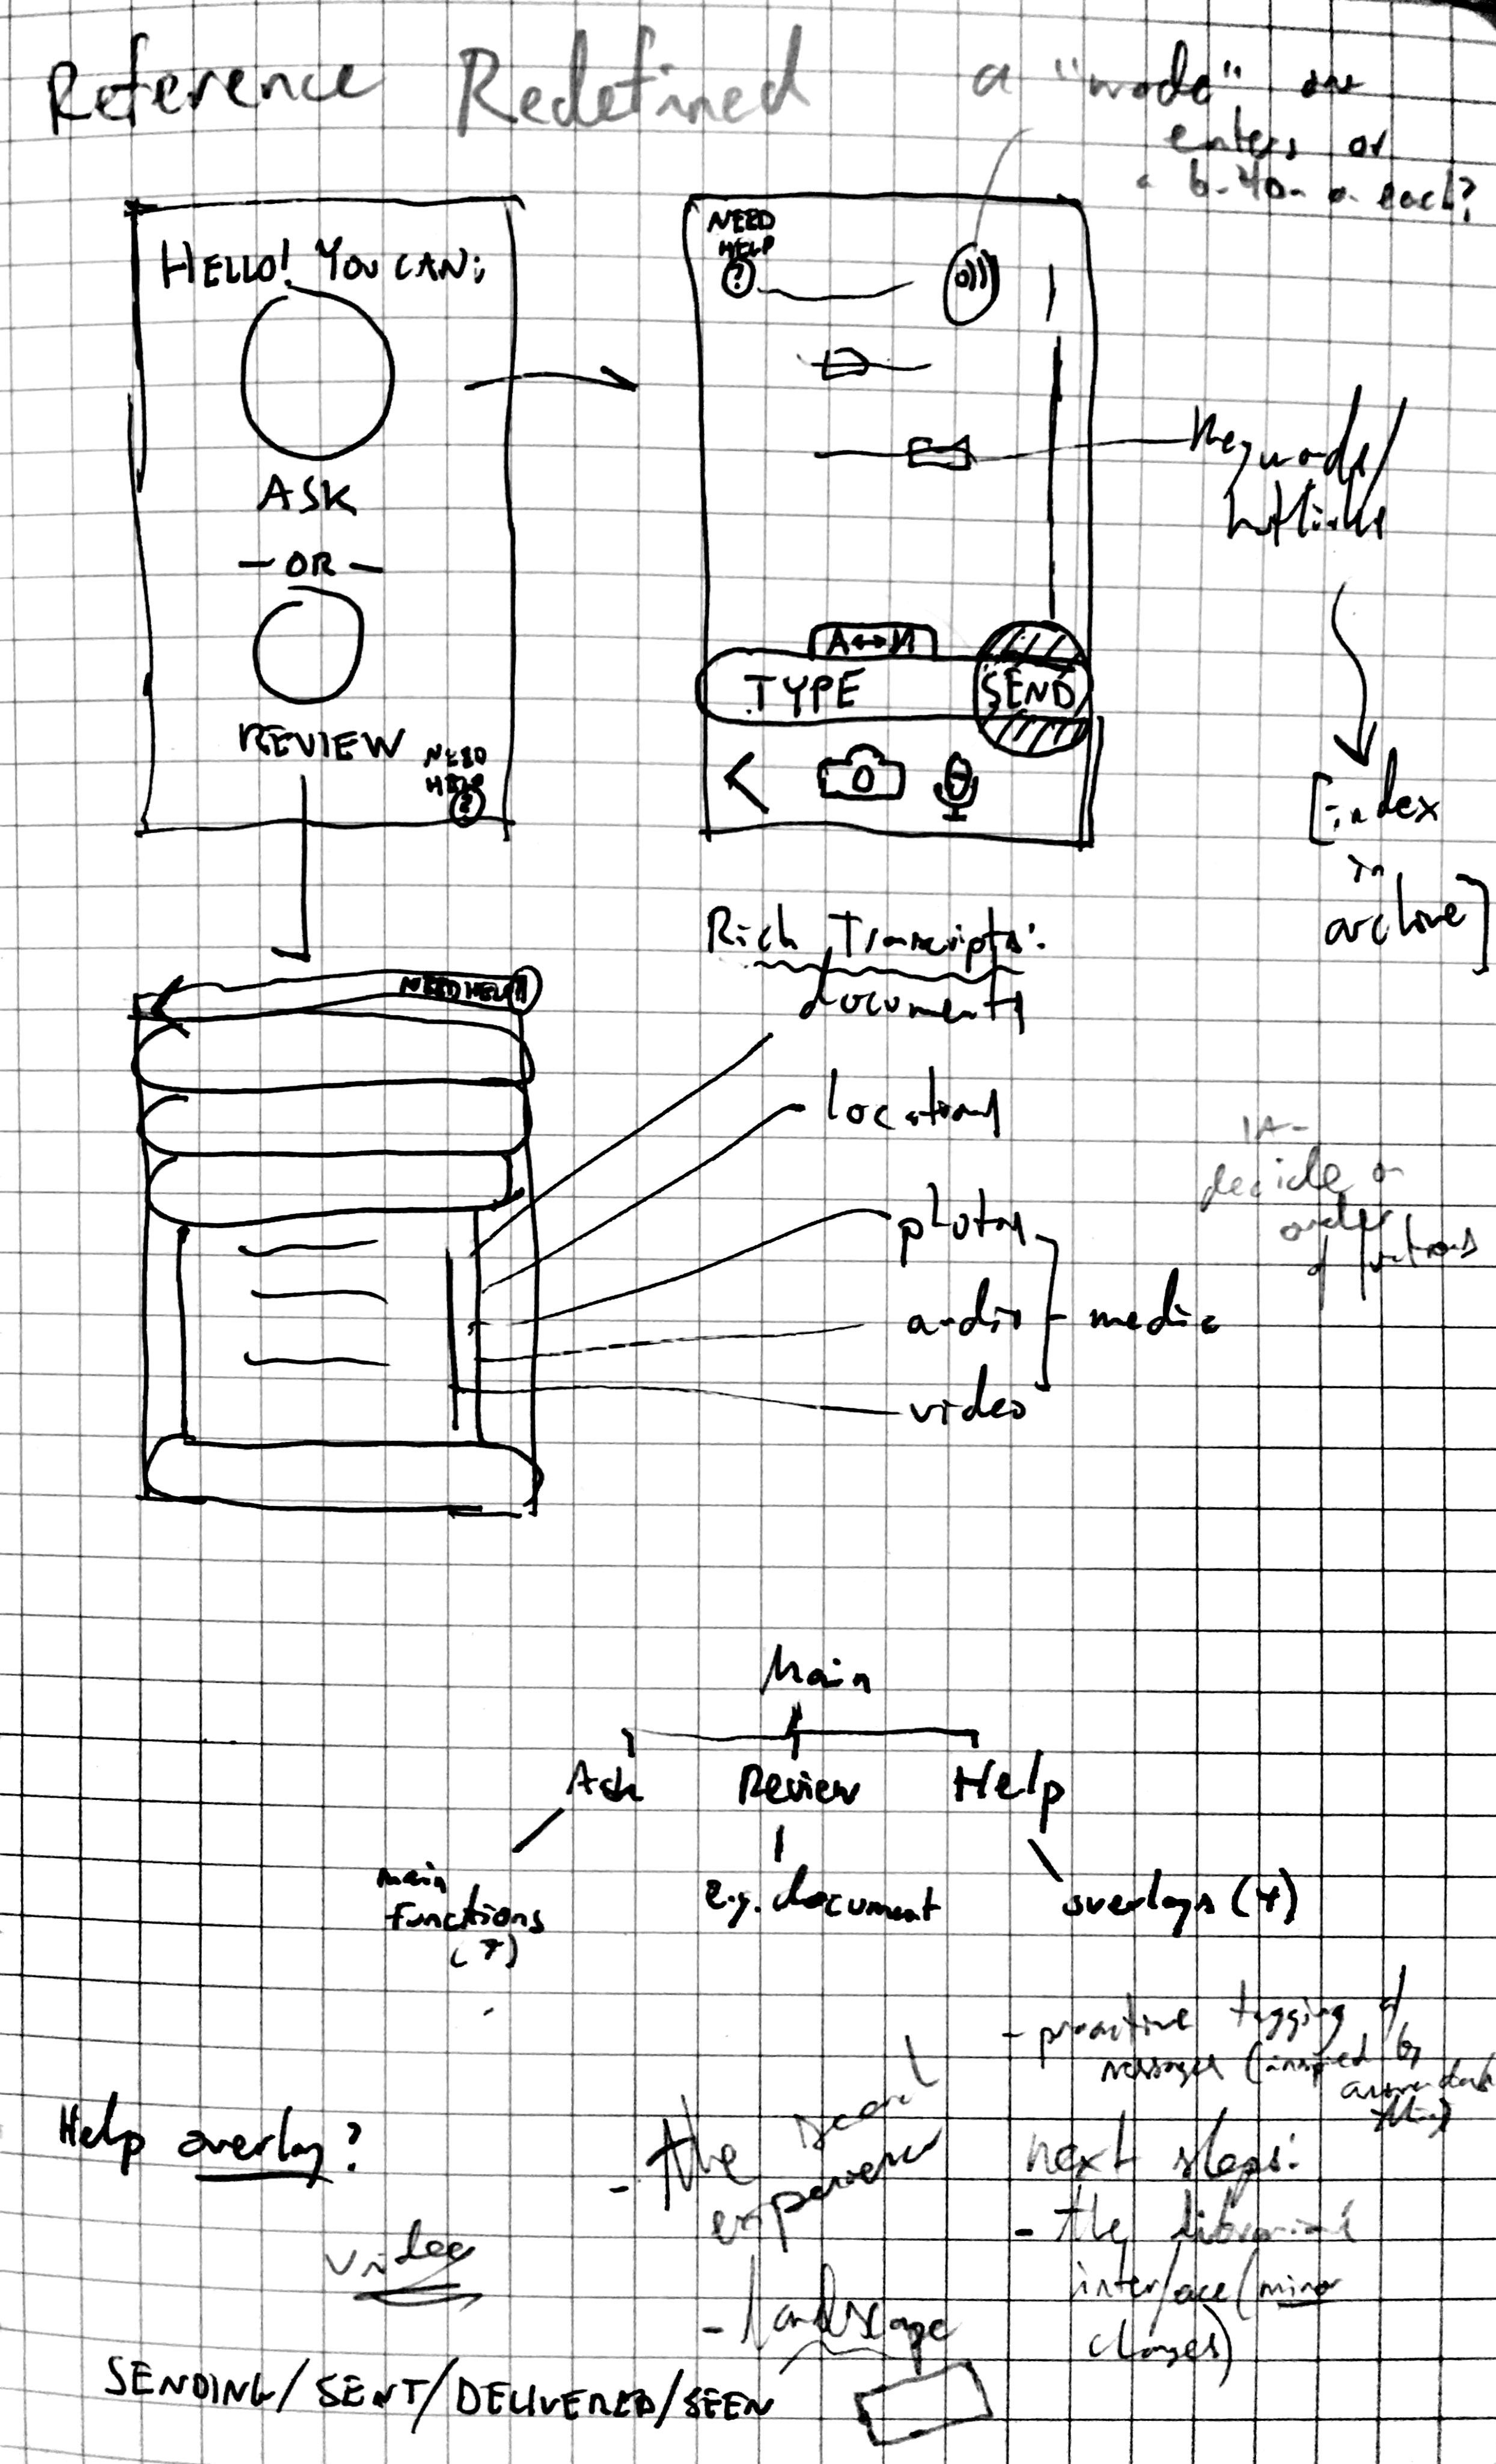 Reference Redefined
a "mode" one
enters or
a button on each?
HELLO! YOU CAN:
ASK
— OR —
REVIEW
NEED
HELP
?
NEED
HELP
?
Keywords/
hotlinks
A↔И
TYPE
SEND
[index
in
archive]
NEED HELP
Rich Transcripts:
documents
locations
photos
audio
video
media
IA-
decide on
order
of functions
Main
Ask
Review
Help
main
functions
(7)
e.g. document
overlays (4)
- proactive tagging of
messages (inspired by
Help overlay?
video
- the
experience
- landscape
next steps:
- the librarian's
interface (minor
changes)
SENDING/SENT/DELIVERED/SEEN